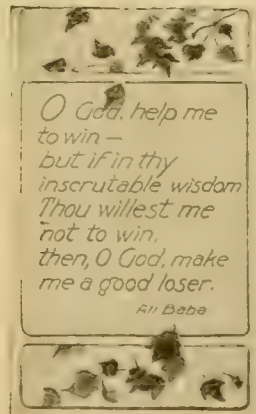 O God, help me
to win —
but if in thy
inscrutable wisdom
Thou willest me
not to win,
then, O God, make
me a good loser.
Ali Baba